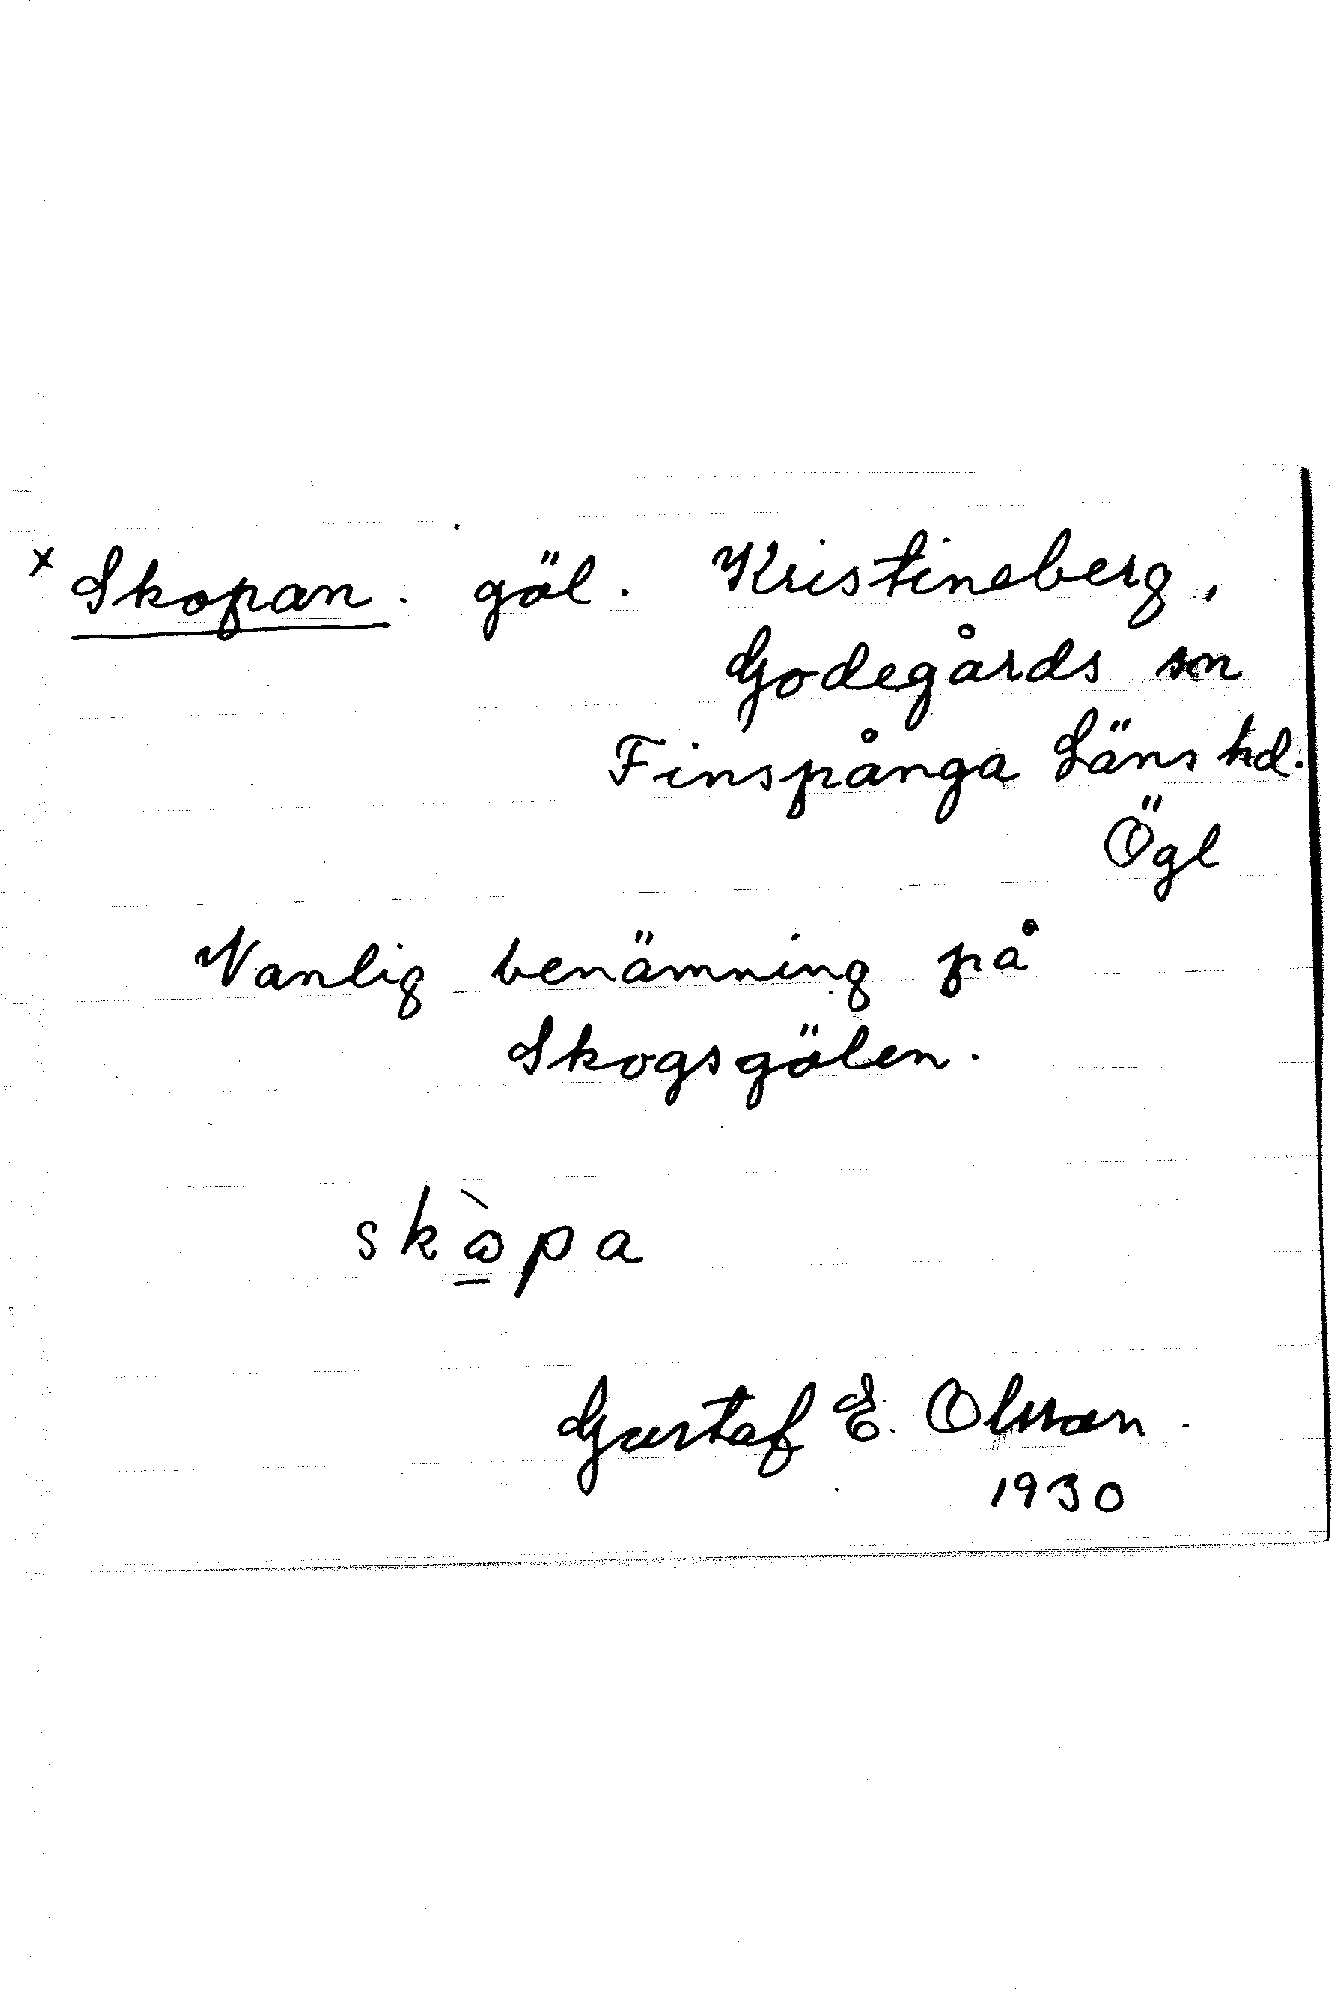 x Skopan. göl. Kristineberg,
Godegårds sn
Finspånga Läns hd.
Ögl
Vanlig benämning på
Skogsgölen.
skɷ̀pa
Gustaf E. Olsson.
1930